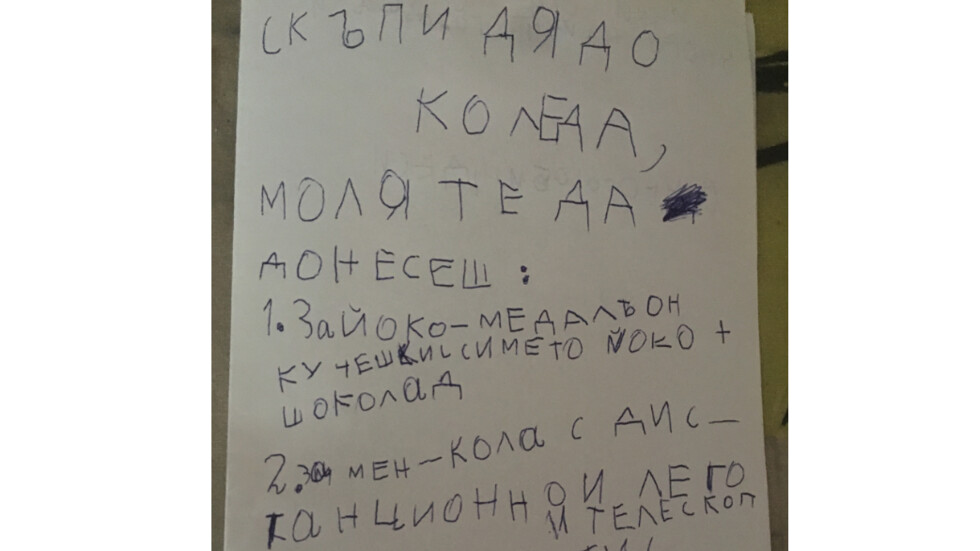 СКЪПИ ДЯДО
КОЛЕДА,
МОЛЯ ТЕ ДА
ДОНЕСЕШ:
1. ЗА ЙОКО-МЕДАЛЬОН
КУЧЕШКИ С ИМЕТО ЙОКО +
ШОКОЛАД
2. ЗА МЕН-КОЛА С ДИС-
ТАНЦИОННО И ЛЕГО
И ТЕЛЕСКОП